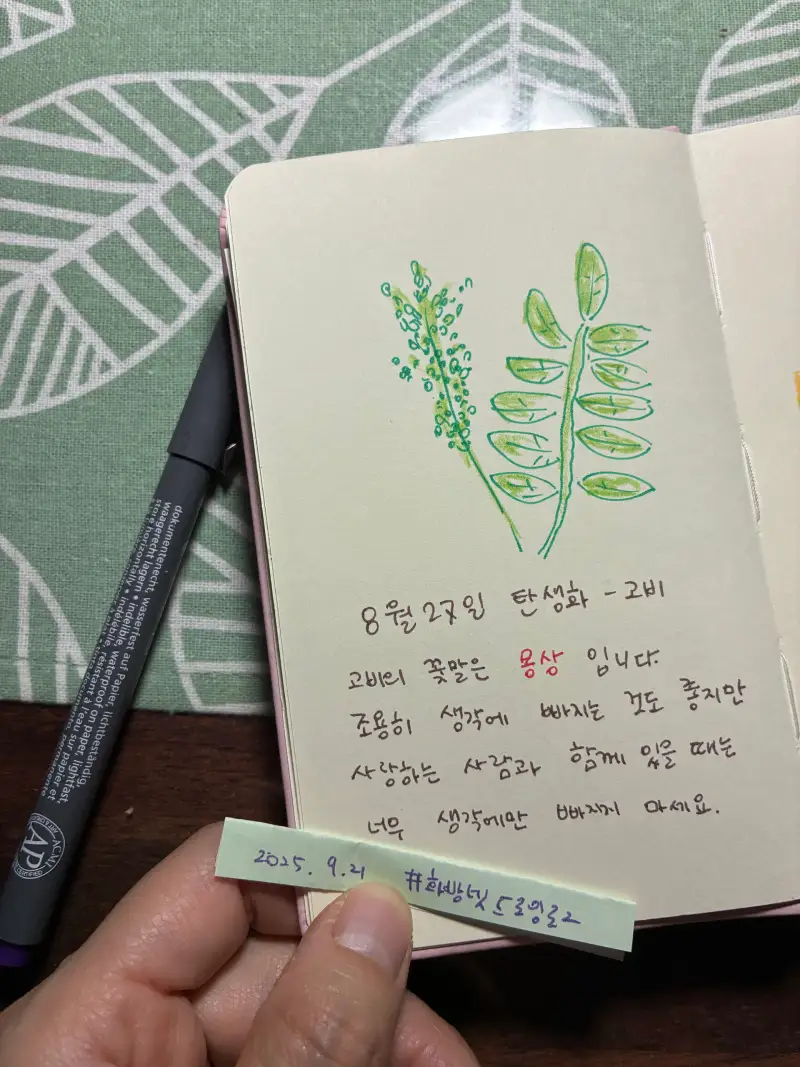 8월 27일 탄생화 - 고비
고비의 꽃말은 몽상 입니다.
조용히 생각에 빠지는 것도 좋지만
사랑하는 사람과 함께 있을 때는
너무 생각에만 빠지지 마세요.
2025. 9.21 #화방넷드로잉로그
dokumentenecht, wasserfest auf Papier, lichtbeständig,
waagerecht lagern • indelible, waterproof on paper, lightfast,
store horizontally • indélébile,
AP
ACMI